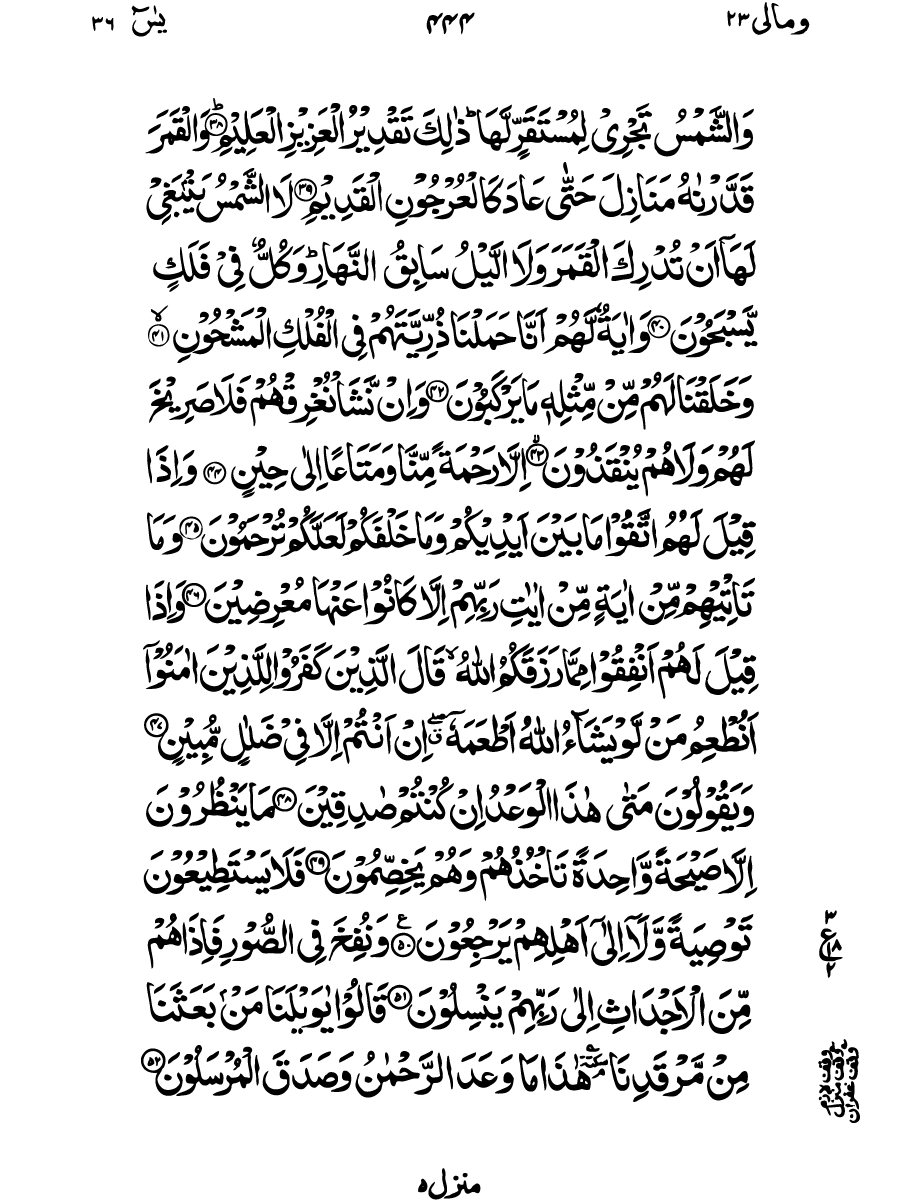 ومالی ۲۳
۴۴۴
یٰسٓ ۳۶
وَالشَّمۡسُ تَجۡرِیۡ لِمُسۡتَقَرٍّ لَّهَا ؕ ذٰلِكَ تَقۡدِیۡرُ الۡعَزِیۡزِ الۡعَلِیۡمِ ؕ﴿۳۸﴾ وَالۡقَمَرَ
قَدَّرۡنٰهُ مَنَازِلَ حَتّٰی عَادَ كَالۡعُرۡجُوۡنِ الۡقَدِیۡمِ ﴿۳۹﴾ لَا الشَّمۡسُ یَنۡۢبَغِیۡ
لَهَاۤ اَنۡ تُدۡرِكَ الۡقَمَرَ وَلَا الَّیۡلُ سَابِقُ النَّهَارِ ؕ وَكُلٌّ فِیۡ فَلَكٍ
یَّسۡبَحُوۡنَ ﴿۴۰﴾ وَاٰیَةٌ لَّهُمۡ اَنَّا حَمَلۡنَا ذُرِّیَّتَهُمۡ فِی الۡفُلۡكِ الۡمَشۡحُوۡنِ ۙ﴿۴۱﴾
وَخَلَقۡنَا لَهُمۡ مِّنۡ مِّثۡلِهٖ مَا یَرۡكَبُوۡنَ ﴿۴۲﴾ وَاِنۡ نَّشَاۡ نُغۡرِقۡهُمۡ فَلَا صَرِیۡخَ
لَهُمۡ وَلَا هُمۡ یُنۡقَذُوۡنَ ۙ﴿۴۳﴾ اِلَّا رَحۡمَةً مِّنَّا وَمَتَاعًا اِلٰی حِیۡنٍ ﴿۴۴﴾ وَاِذَا
قِیۡلَ لَهُمُ اتَّقُوۡا مَا بَیۡنَ اَیۡدِیۡكُمۡ وَمَا خَلۡفَكُمۡ لَعَلَّكُمۡ تُرۡحَمُوۡنَ ﴿۴۵﴾ وَمَا
تَاۡتِیۡهِمۡ مِّنۡ اٰیَةٍ مِّنۡ اٰیٰتِ رَبِّهِمۡ اِلَّا كَانُوۡا عَنۡهَا مُعۡرِضِیۡنَ ﴿۴۶﴾ وَاِذَا
قِیۡلَ لَهُمۡ اَنۡفِقُوۡا مِمَّا رَزَقَكُمُ اللّٰهُ ۙ قَالَ الَّذِیۡنَ كَفَرُوۡا لِلَّذِیۡنَ اٰمَنُوۡۤا
اَنُطۡعِمُ مَنۡ لَّوۡ یَشَآءُ اللّٰهُ اَطۡعَمَهٗۤ ٭ۖ اِنۡ اَنۡتُمۡ اِلَّا فِیۡ ضَلٰلٍ مُّبِیۡنٍ ﴿۴۷﴾
وَیَقُوۡلُوۡنَ مَتٰی هٰذَا الۡوَعۡدُ اِنۡ كُنۡتُمۡ صٰدِقِیۡنَ ﴿۴۸﴾ مَا یَنۡظُرُوۡنَ
اِلَّا صَیۡحَةً وَّاحِدَةً تَاۡخُذُهُمۡ وَهُمۡ یَخِصِّمُوۡنَ ﴿۴۹﴾ فَلَا یَسۡتَطِیۡعُوۡنَ
تَوۡصِیَةً وَّلَاۤ اِلٰۤی اَهۡلِهِمۡ یَرۡجِعُوۡنَ ﴿۵۰﴾ ع وَنُفِخَ فِی الصُّوۡرِ فَاِذَا هُمۡ
۳
ع ۱۸
۲
مِّنَ الۡاَجۡدَاثِ اِلٰی رَبِّهِمۡ یَنۡسِلُوۡنَ ﴿۵۱﴾ قَالُوۡا یٰوَیۡلَنَا مَنۡۢ بَعَثَنَا
مِنۡ مَّرۡقَدِنَا هٰذَا مَا وَعَدَ الرَّحۡمٰنُ وَصَدَقَ الۡمُرۡسَلُوۡنَ ﴿۵۲﴾
وقف لازم
وقف منزل
وقف غفران
منزل ۵